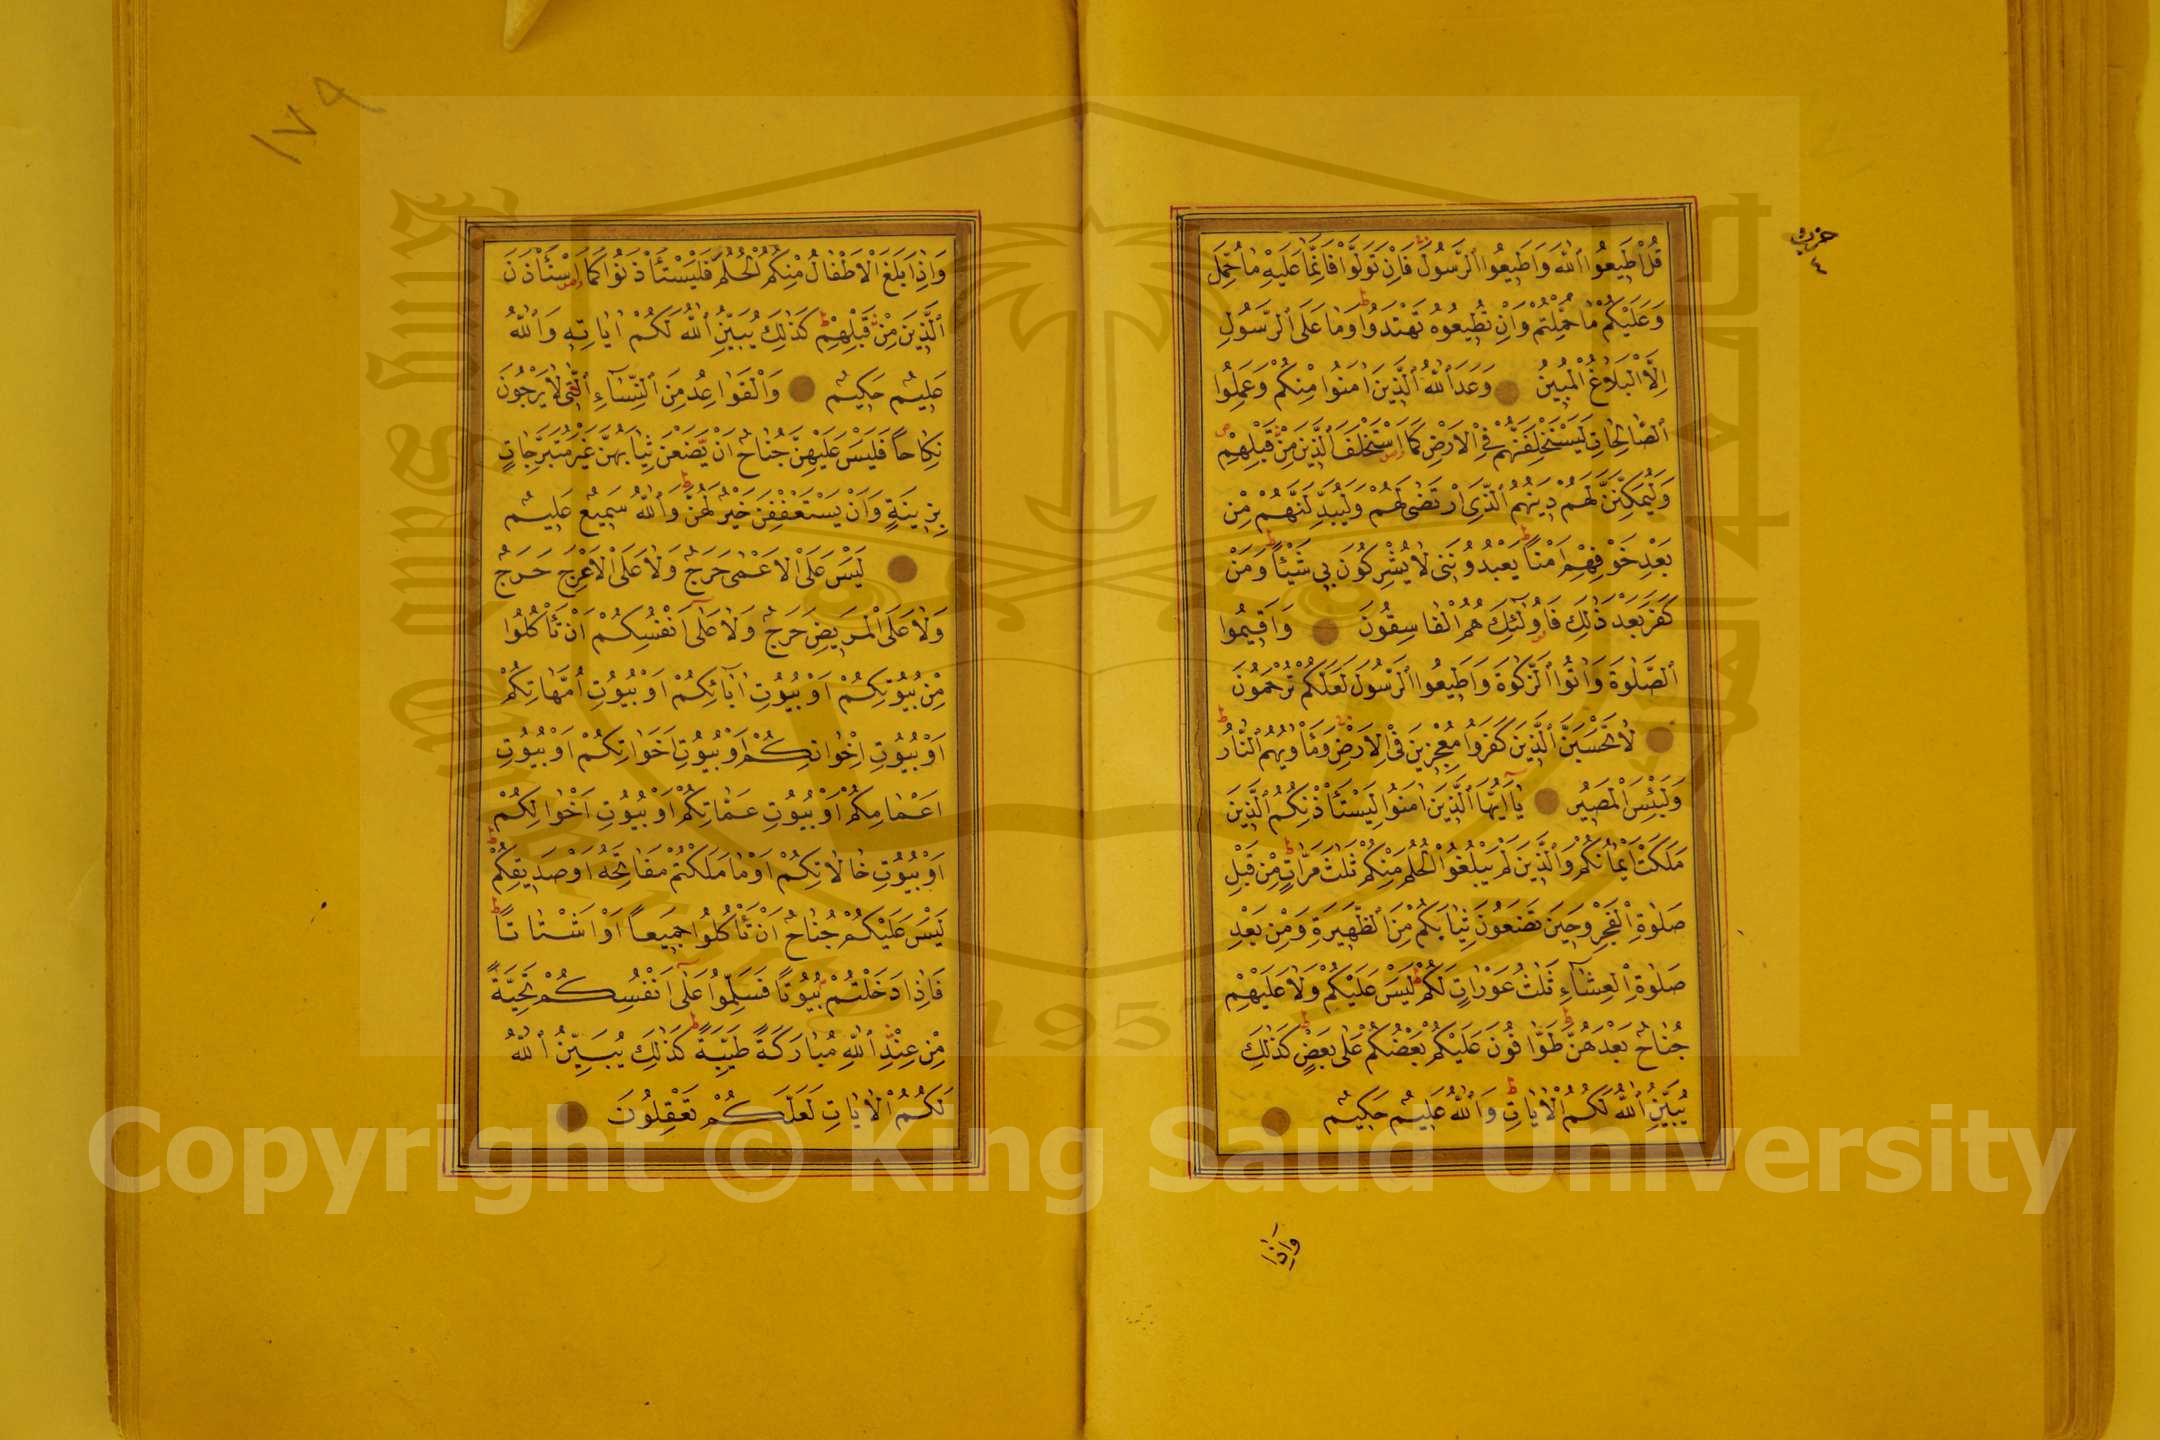 حزب
٤
قُلْ اَطٖيعُوا اللّٰهَ وَاَطٖيعُوا الرَّسُولَ فَاِنْ تَوَلَّوْا فَاِنَّمَا عَلَيْهِ مَا حُمِّلَ
وَعَلَيْكُمْ مَا حُمِّلْتُمْ وَاِنْ تُطٖيعُوهُ تَهْتَدُوا وَمَا عَلَى الرَّسُولِ
اِلَّا الْبَلَاغُ الْمُبٖينُ وَعَدَ اللّٰهُ الَّذٖينَ اٰمَنُوا مِنْكُمْ وَعَمِلُوا
الصَّالِحَاتِ لَيَسْتَخْلِفَنَّهُمْ فِى الْاَرْضِ كَمَا اسْتَخْلَفَ الَّذٖينَ مِنْ قَبْلِهِمْ
وَلَيُمَكِّنَنَّ لَهُمْ دٖينَهُمُ الَّذِى ارْتَضٰى لَهُمْ وَلَيُبَدِّلَنَّهُمْ مِنْ
بَعْدِ خَوْفِهِمْ اَمْنًا يَعْبُدُونَنٖى لَا يُشْرِكُونَ بٖى شَيْئًا وَمَنْ
كَفَرَ بَعْدَ ذٰلِكَ فَاُولٰٓئِكَ هُمُ الْفَاسِقُونَ وَاَقٖيمُوا
الصَّلٰوةَ وَاٰتُوا الزَّكٰوةَ وَاَطٖيعُوا الرَّسُولَ لَعَلَّكُمْ تُرْحَمُونَ
لَا تَحْسَبَنَّ الَّذٖينَ كَفَرُوا مُعْجِزٖينَ فِى الْاَرْضِ وَمَاْوٰيهُمُ النَّارُ
وَلَبِئْسَ الْمَصٖيرُ يَٓا اَيُّهَا الَّذٖينَ اٰمَنُوا لِيَسْتَاْذِنْكُمُ الَّذٖينَ
مَلَكَتْ اَيْمَانُكُمْ وَالَّذٖينَ لَمْ يَبْلُغُوا الْحُلُمَ مِنْكُمْ ثَلٰثَ مَرَّاتٍ مِنْ قَبْلِ
صَلٰوةِ الْفَجْرِ وَحٖينَ تَضَعُونَ ثِيَابَكُمْ مِنَ الظَّهٖيرَةِ وَمِنْ بَعْدِ
صَلٰوةِ الْعِشَٓاءِ ثَلٰثُ عَوْرَاتٍ لَكُمْ لَيْسَ عَلَيْكُمْ وَلَا عَلَيْهِمْ
جُنَاحٌ بَعْدَهُنَّ طَوَّافُونَ عَلَيْكُمْ بَعْضُكُمْ عَلٰى بَعْضٍ كَذٰلِكَ
يُبَيِّنُ اللّٰهُ لَكُمُ الْاٰيَاتِ وَاللّٰهُ عَلٖيمٌ حَكٖيمٌ
وَاِذَا
١٧٩
وَاِذَا بَلَغَ الْاَطْفَالُ مِنْكُمُ الْحُلُمَ فَلْيَسْتَاْذِنُوا كَمَا اسْتَاْذَنَ
الَّذٖينَ مِنْ قَبْلِهِمْ كَذٰلِكَ يُبَيِّنُ اللّٰهُ لَكُمْ اٰيَاتِهٖ وَاللّٰهُ
عَلٖيمٌ حَكٖيمٌ وَالْقَوَاعِدُ مِنَ النِّسَٓاءِ الّٰتٖى لَا يَرْجُونَ
نِكَاحًا فَلَيْسَ عَلَيْهِنَّ جُنَاحٌ اَنْ يَضَعْنَ ثِيَابَهُنَّ غَيْرَ مُتَبَرِّجَاتٍ
بِزٖينَةٍ وَاَنْ يَسْتَعْفِفْنَ خَيْرٌ لَهُنَّ وَاللّٰهُ سَمٖيعٌ عَلٖيمٌ
لَيْسَ عَلَى الْاَعْمٰى حَرَجٌ وَلَا عَلَى الْاَعْرَجِ حَرَجٌ
وَلَا عَلَى الْمَرٖيضِ حَرَجٌ وَلَا عَلٰٓى اَنْفُسِكُمْ اَنْ تَاْكُلُوا
مِنْ بُيُوتِكُمْ اَوْ بُيُوتِ اٰبَٓائِكُمْ اَوْ بُيُوتِ اُمَّهَاتِكُمْ
اَوْ بُيُوتِ اِخْوَانِكُمْ اَوْ بُيُوتِ اَخَوَاتِكُمْ اَوْ بُيُوتِ
اَعْمَامِكُمْ اَوْ بُيُوتِ عَمَّاتِكُمْ اَوْ بُيُوتِ اَخْوَالِكُمْ
اَوْ بُيُوتِ خَالَاتِكُمْ اَوْ مَا مَلَكْتُمْ مَفَاتِحَهُ اَوْ صَدٖيقِكُمْ
لَيْسَ عَلَيْكُمْ جُنَاحٌ اَنْ تَاْكُلُوا جَمٖيعًا اَوْ اَشْتَاتًا
فَاِذَا دَخَلْتُمْ بُيُوتًا فَسَلِّمُوا عَلٰٓى اَنْفُسِكُمْ تَحِيَّةً
مِنْ عِنْدِ اللّٰهِ مُبَارَكَةً طَيِّبَةً كَذٰلِكَ يُبَيِّنُ اللّٰهُ
لَكُمُ الْاٰيَاتِ لَعَلَّكُمْ تَعْقِلُونَ
1957
Copyright © King Saud University